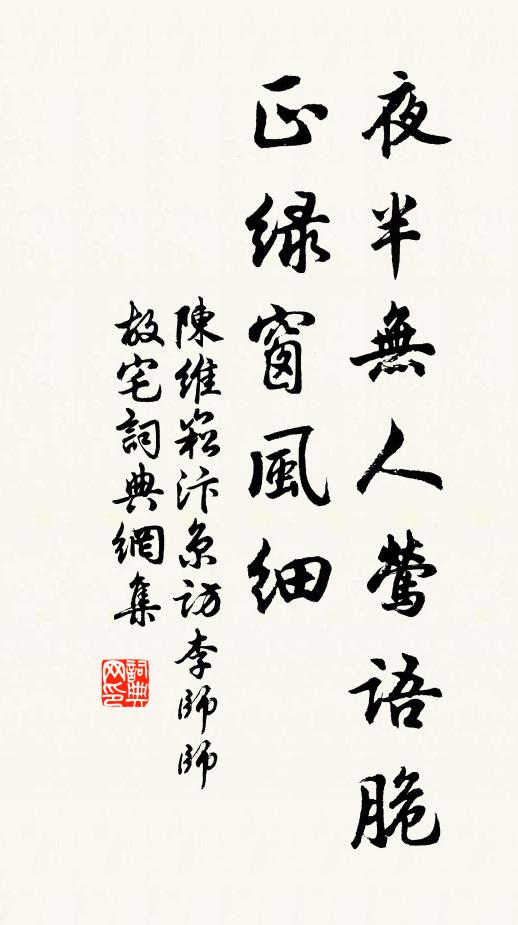 夜半無人鶯語脆
正緑窗風細
陳維崧汴京訪李師師
故宅詞典網集
詞典网印